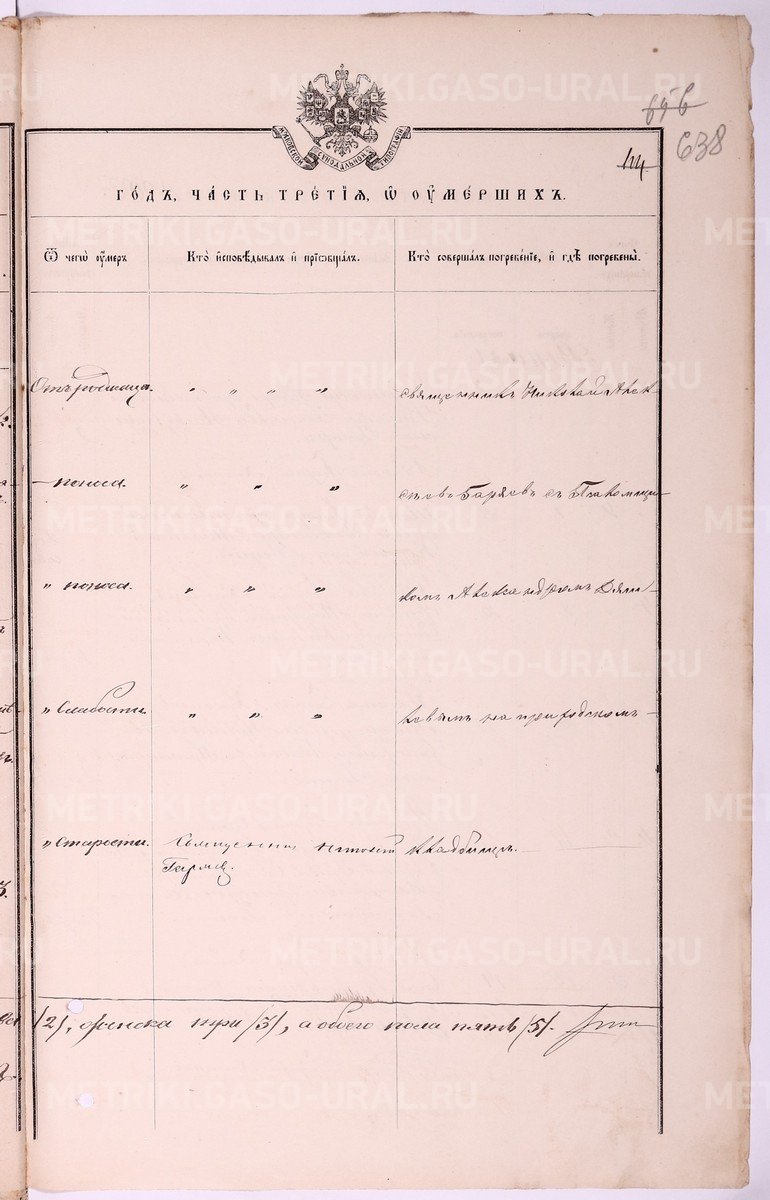 МОСКОВСКОЙ СѴНОДАЛЬНОЙ ТИПОГРАФІИ
69б
638
114
ГО́ДЪ, ЧА́СТЬ ТРЕ́ТІѦ, Ѡ҆ ОУ҆МЕ́РШИХЪ.
Ѿ чегѡ̀ оу҆́меръ
Кто̀ и҆сповѣ́дывалъ и҆ прїѡбща́лъ.
Кто̀ соверша́лъ погребе́нїе, и҆ гдѣ̀ погребены̀.
Отъ родимца. " " " " священникъ Николай Алек-
" поноса. " " " сѣевъ Гаряевъ съ Псаломщи-
" поноса. " " " комъ Александромъ Дьяч-
" Слабости. " " " ковымъ на приходскомъ
" Старости. Священникъ Николай кладбищѣ.
Гаряевъ.
/2/, женска три /3/, а обоего пола пять /5/.
METRIKI.GASO-URAL.RU